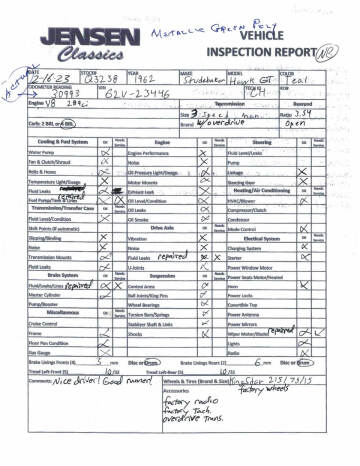 JENSEN Classics
Metallic Green Poly
VEHICLE INSPECTION REPORT
Actual
DATE 12-16-23 STOCK# Q3238 YEAR 1962 MAKE Studebaker MODEL Hawk GT COLOR Teal
ODOMETER READING 30993 VIN# 62V-23446 TECH ID CH RO#
Engine V8 289ci Transmission Rearend
Size 3 Speed man. Ratio 3.54
Carb: 2 BBL or 4 BBL Brand w/overdrive Open
Cooling & Fuel System OK Needs Service Engine OK Needs Service Steering OK Needs Service
Water Pump Engine Performance Fluid Level/Leaks
Fan & Clutch/Shroud Noise Pump
Belts & Hoses Oil Pressure Light/Gauge Linkage
Temperature Light/Gauge Motor Mounts Steering Gear
Fluid Leaks repaired Exhaust Leak Heating/Air Conditioning OK Needs Service
Fuel Pump/Tank & Lines repaired Oil Level/Condition HVAC/Blower
Transmission/Transfer Case OK Needs Service Oil Leaks Compressor/Clutch
Fluid Level/Condition Oil Smoke Condenser
Shift Points (if automatic) Drive Axle OK Needs Service Mode Control
Slipping/Binding Vibration Electrical System OK Needs Service
Noise Noise Charging System
Transmission Mounts Fluid Leaks repaired Starter
Fluid Leaks U-Joints Power Window Motor
Brake System OK Needs Service Suspension OK Needs Service Power Seats Motor/Heated
Fluid/Leaks/Lines repaired Control Arms Horn
Master Cylinder Ball Joints/King Pins Power Locks
Pump/Booster Wheel Bearings Convertible Top
Miscellaneous OK Needs Service Torsion Bars/Springs Power Antenna
Cruise Control Stabilizer Shaft & Links Power Mirrors
Frame Shocks Wiper Motor/Blades repaired
Floor Pan Condition Lights
Gas Gauge Radio
Brake Linings Front (2) 5 mm Disc or Drum Brake Linings Rears (2) 6 mm Disc or Drum
Tread Left-Front (2) 10/32 Tread Left-Rear (2) 10/32
Comments: Nice driver! Good runner! Wheels & Tires (Brand & Size) Kingstar 215/75/15
Accessories factory wheels
factory radio
factory Tach.
overdrive Trans.